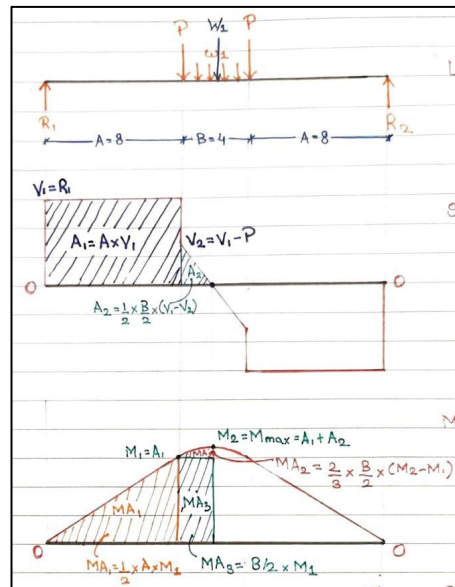 P W1 P
ω1
R1 R2
A=8 B=4 A=8
V1=R1
A1=A×V1
V2=V1-P
A2
O O
A2=1/2×B/2×(V1-V2)
M2=Mmax=A1+A2
M1=A1
MA2=2/3×B/2×(M2-M1)
MA1
MA3
O O
MA1=1/2×A×M1
MA3=B/2×M1